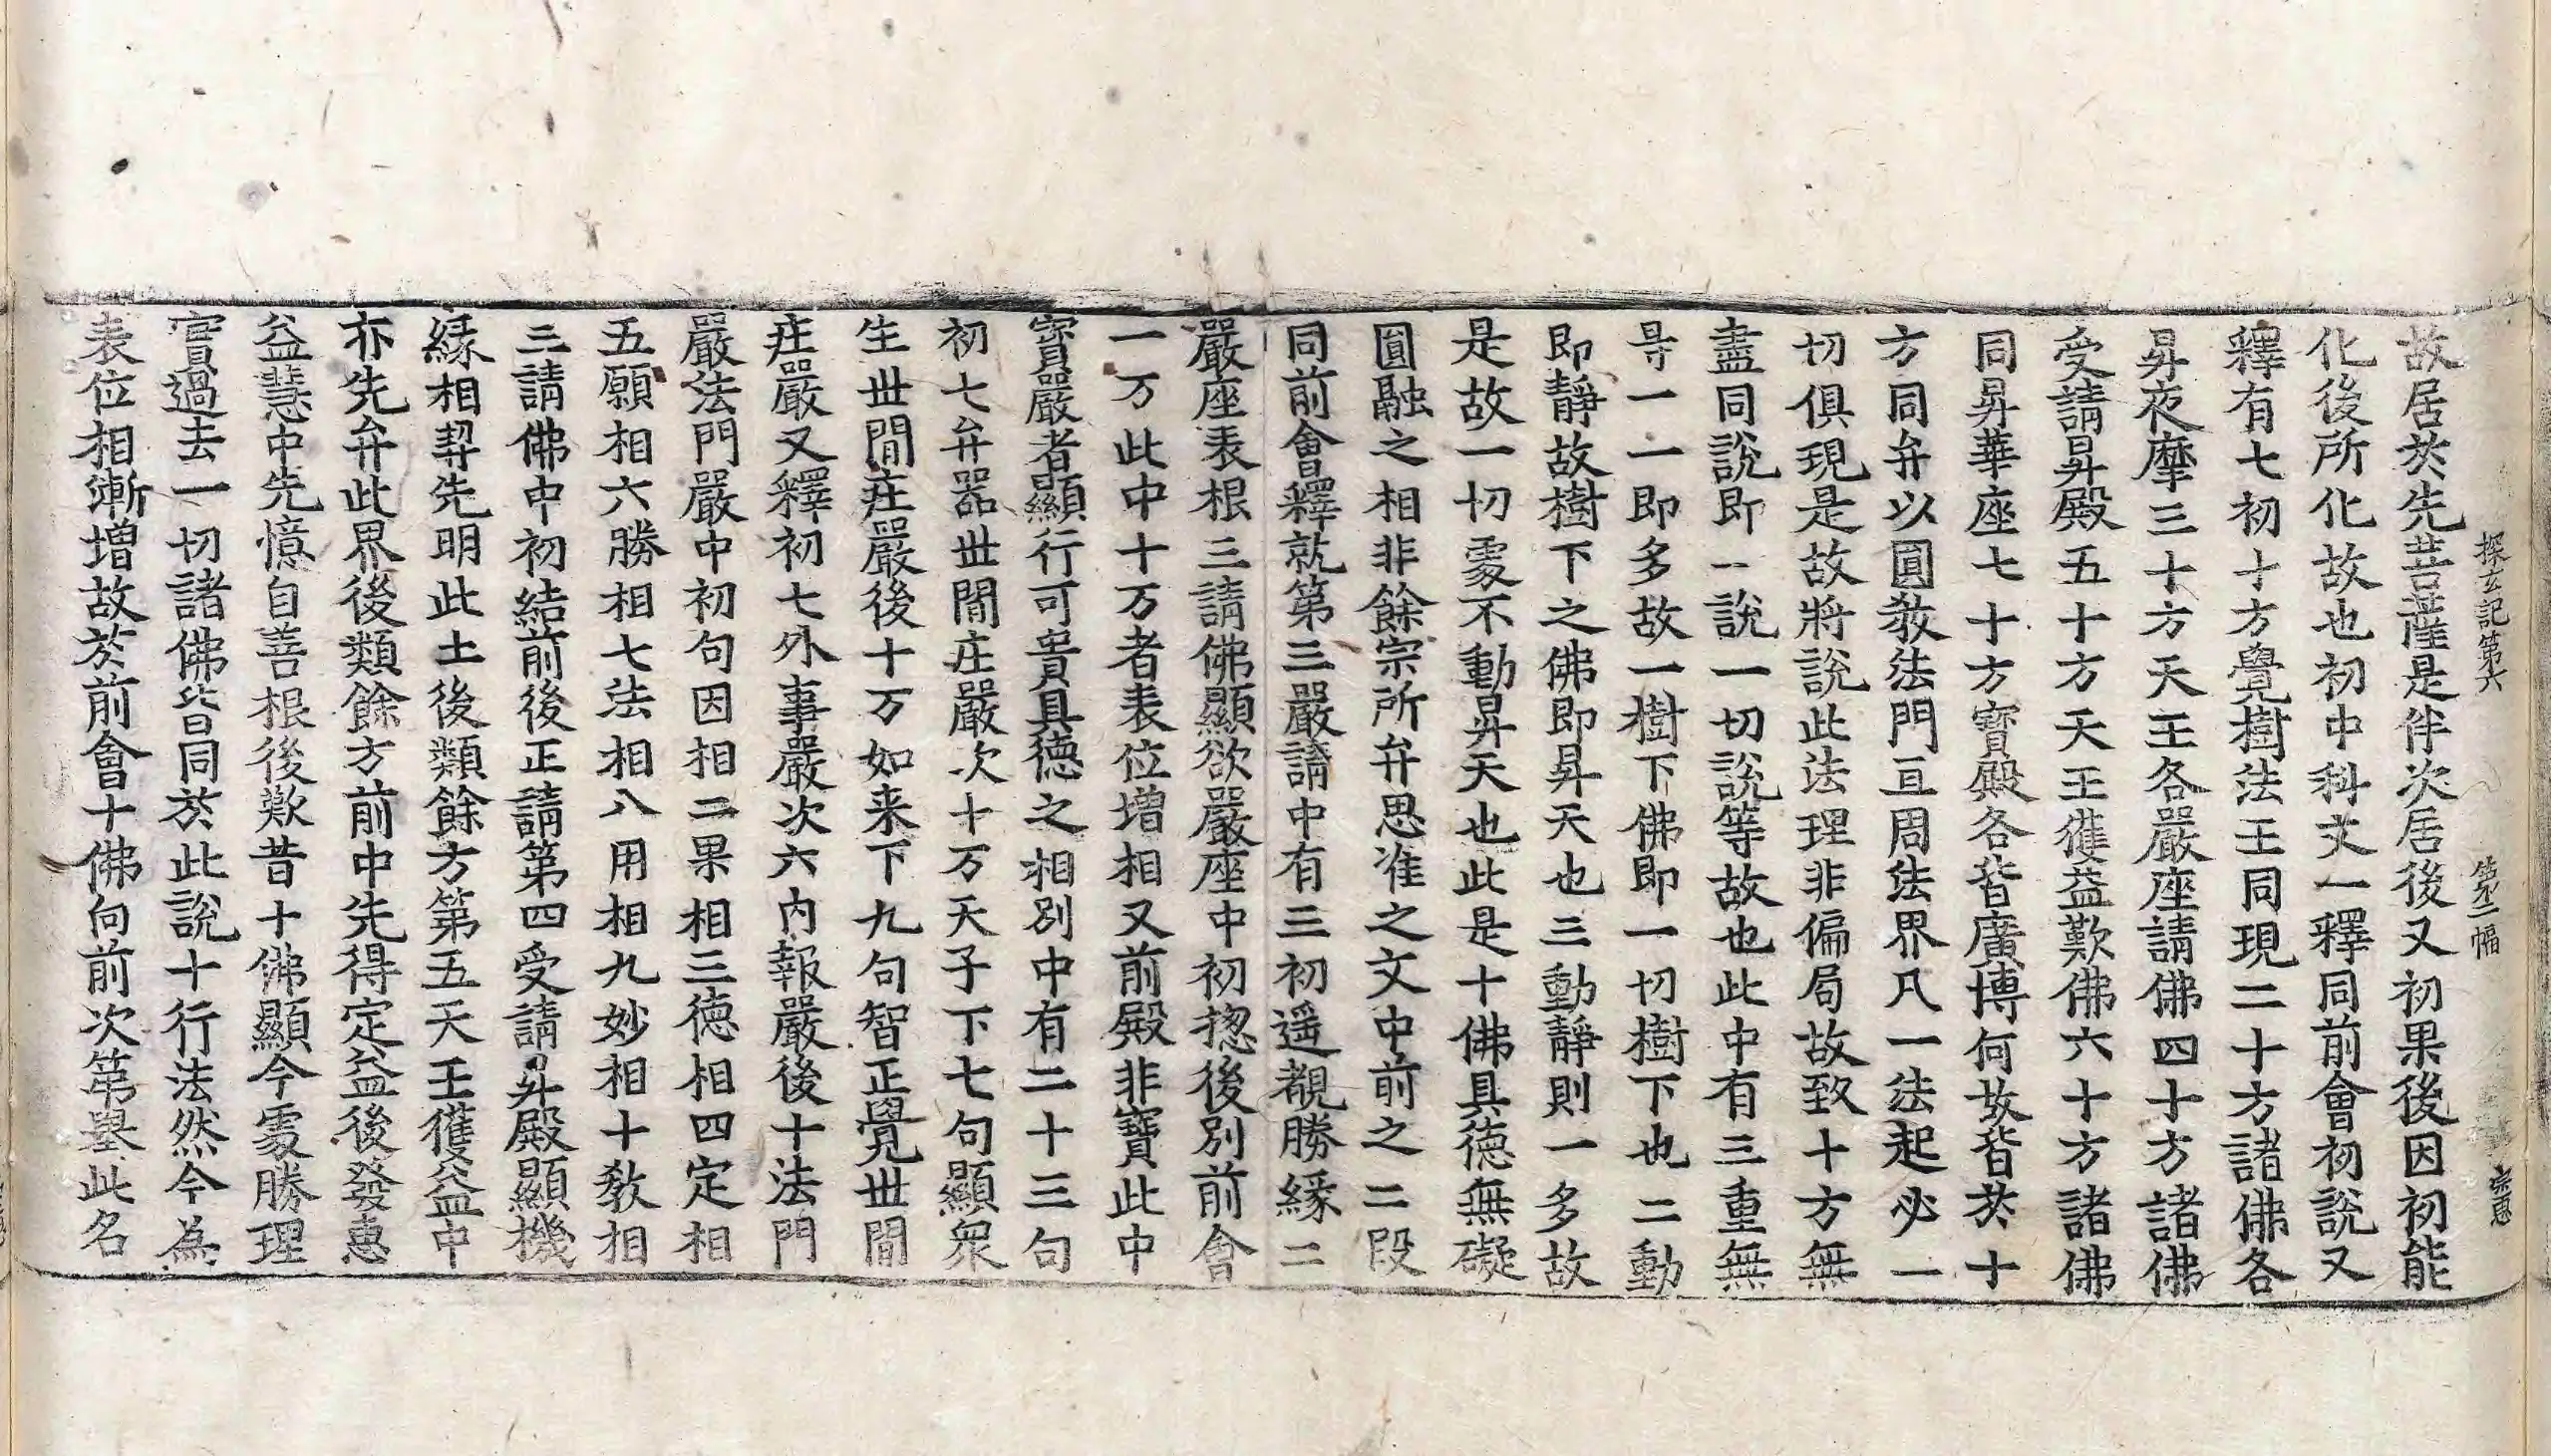 探玄記第六　第二幅　宗恵
故居於先菩薩是伴次居後又初果後因初能
化後所化故也初中科文一釋同前會初說又
釋有七初十方覺樹法王同現二十方諸佛各
昇夜摩三十方天王各嚴座請佛四十方諸佛
受請昇殿五十方天王獲益歎佛六十方諸佛
同昇華座七十方寳殿各皆廣博何故皆於十
方同弁以圓教法門亘周法界凡一法起必一
切俱現是故將說此法理非偏局故致十方無
盡同說即一說一切說等故也此中有三重無
㝵一一即多故一樹下佛即一切樹下也二動
即靜故樹下之佛即昇天也三動靜則一多故
是故一切處不動昇天也此是十佛具德無礙
圓融之相非餘宗所弁思准之文中前之二段
同前會釋就第三嚴請中有三初遥覩勝緣二
嚴座表根三請佛顯欲嚴座中初揔後別前會
一万此中十万者表位增相又前殿非寶此中
寳嚴者顯行可貴具德之相別中有二十三句
初七弁器世間庄嚴次十万天子下七句顯衆
生世間庄嚴後十万如来下九句智正覺世間
庄嚴又釋初七外事嚴次六内報嚴後十法門
嚴法門嚴中初句因相二果相三德相四定相
五願相六勝相七法相八用相九妙相十教相
三請佛中初結前後正請第四受請昇殿顯機
緣相契先明此土後類餘方第五天王獲益中
亦先弁此界後類餘方前中先得定益後發惠
益慧中先憶自善根後歎昔十佛顯今處勝理
實過去一切諸佛皆同於此說十行法然今為
表位相漸增故於前會十佛向前次第舉此名